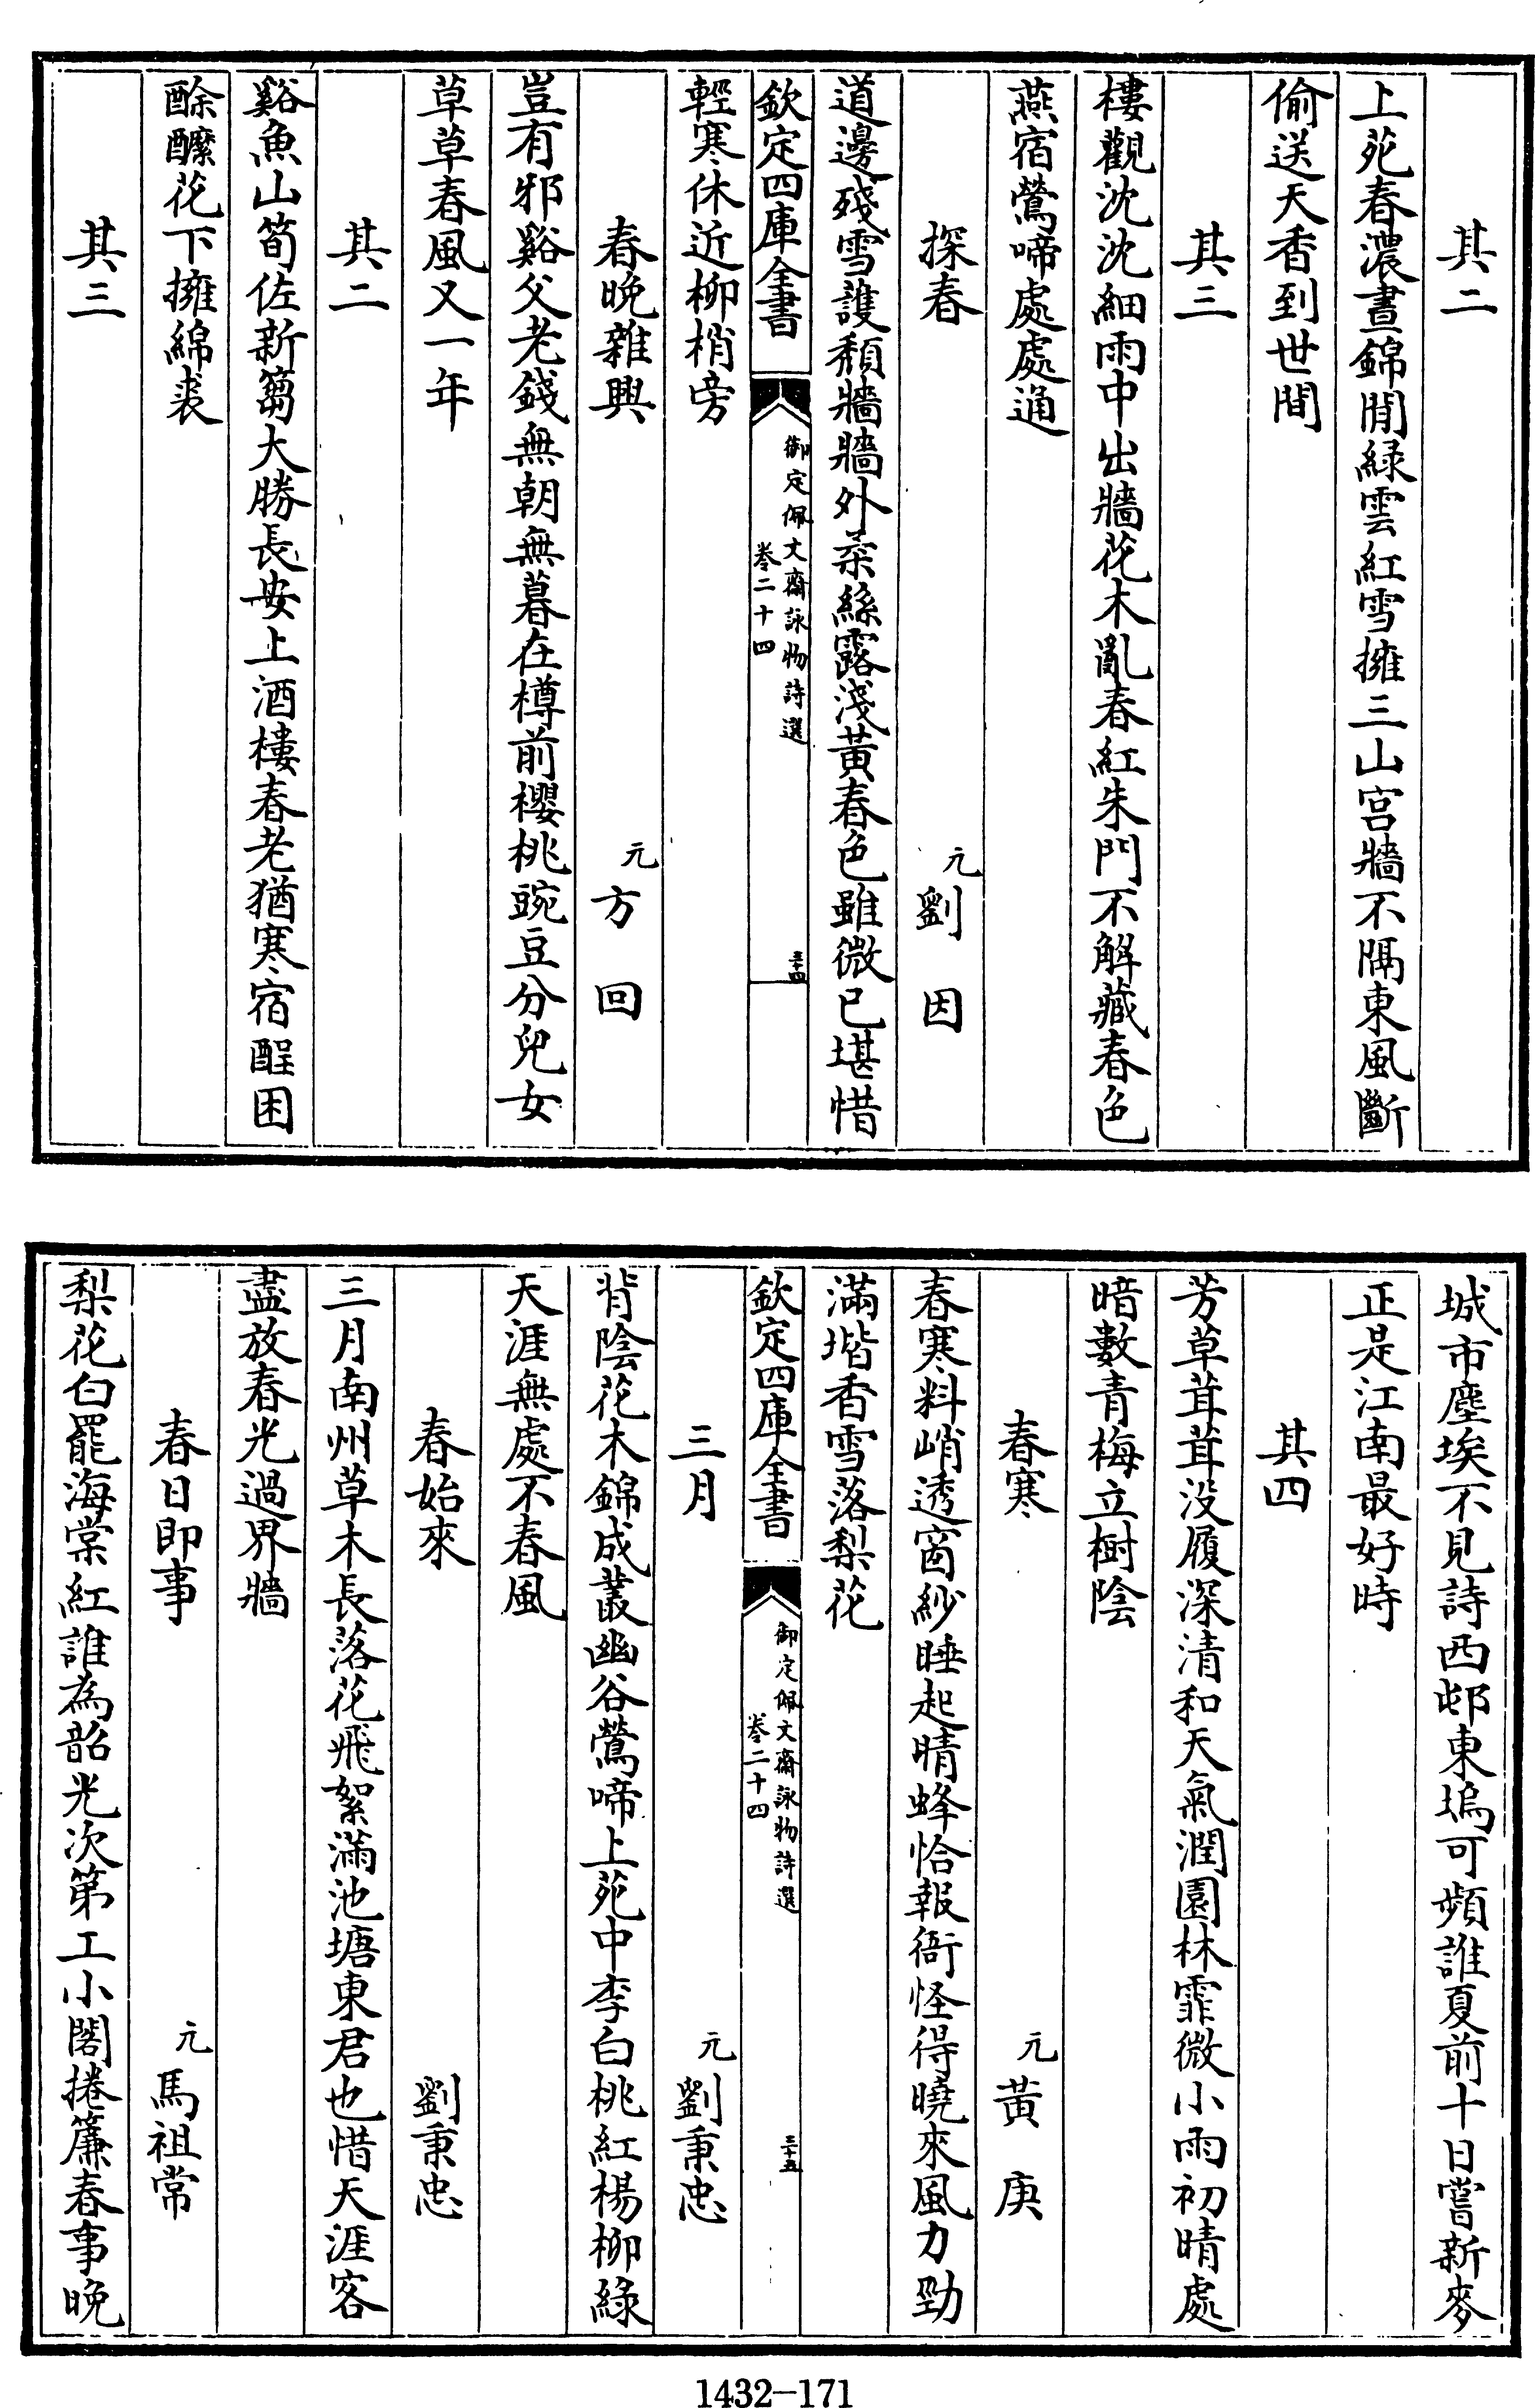 其二
上苑春濃晝錦閒綠雲紅雪擁三山宫牆不隔東風斷
偷送天香到世間
其三
樓觀沈沈細雨中出牆花木亂春紅朱門不解藏春色
燕宿鶯啼處處通
探春
元劉因
道邊殘雪護頹牆牆外柔絲露淺黃春色雖微已堪惜
欽定四庫全書
御定佩文齋詠物詩選
卷二十四
三十四
輕寒休近柳梢旁
春晚雜興
元方回
豈有邪谿父老錢無朝無暮在樽前櫻桃豌豆分兒女
草草春風又一年
其二
谿魚山筍佐新篘大勝長安上酒樓春老猶寒宿酲困
酴醿花下擁綿裘
其三
城市塵埃不見詩西邨東塢可頻誰夏前十日嘗新麥
正是江南最好時
其四
芳草茸茸没履深清和天氣潤園林霏微小雨初晴處
暗數青梅立樹陰
春寒
元黃庚
春寒料峭透窗紗睡起晴蜂恰報衙怪得曉來風力勁
滿堦香雪落梨花
欽定四庫全書
御定佩文齋詠物詩選
卷二十四
三十五
三月
元劉秉忠
背陰花木錦成叢幽谷鶯啼上苑中李白桃紅楊柳綠
天涯無處不春風
春始來
劉秉忠
三月南州草木長落花飛絮滿池塘東君也惜天涯客
盡放春光過界牆
春日即事
元馬祖常
梨花白罷海棠紅誰為韶光次第工小閣捲簾春事晚
1432-171